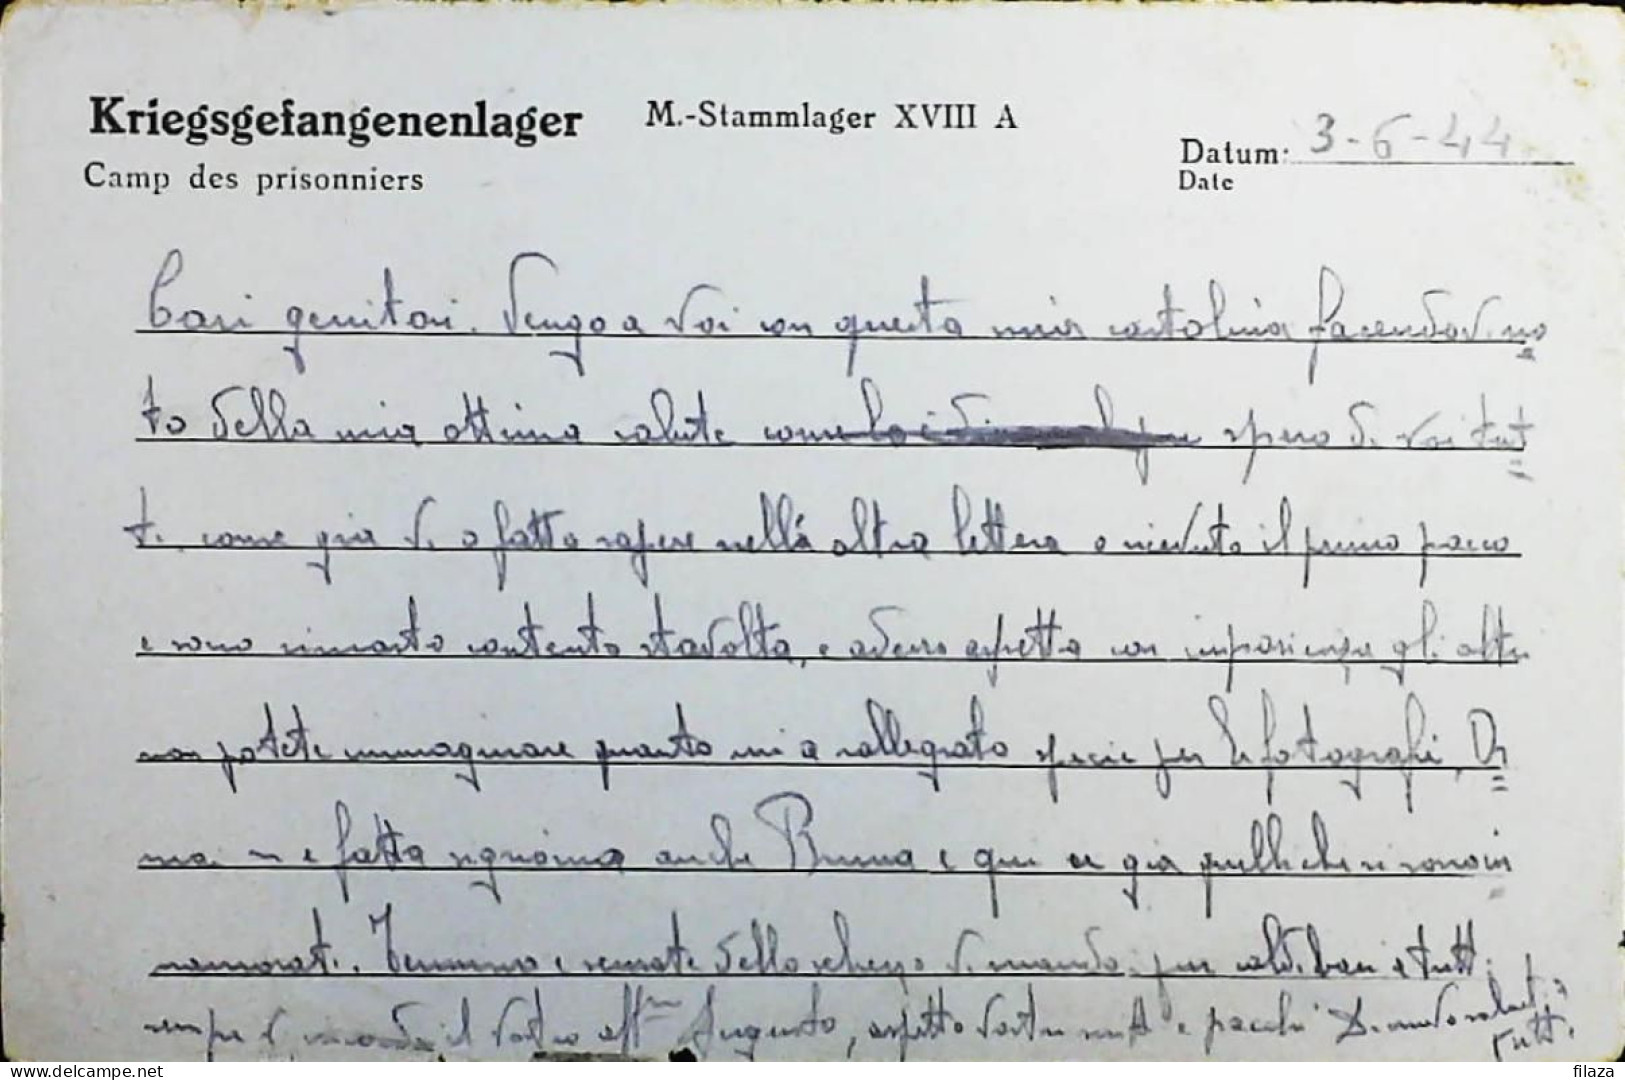 Kriegsgefangenenlager M.-Stammlager XVIII A
Camp des prisonniers
Datum: 3-6-44
Date
Cari genitori. Vengo a voi con questa mia cartolina facendovi no
to della mia ottima salute come spero di voi tut
ti. come già vi o fatto sapere nella altra lettera o ricevuto il primo pacco
e sono rimasto contento stavolta, e adesso aspetto con impazienza gli altri
non potete immaginare quanto mi a rallegrato specie per le fotografi. Or
mai si e fatta signorina anche Bruna e qui ce gia quelli che si sono in
namorati. Termino e scusate dello scherzo vi mando più caldi baci a tutti
sempre il vostro aff.mo Augusto, aspetto vostre e pacchi Di nuovo saluti
tutti
filaza